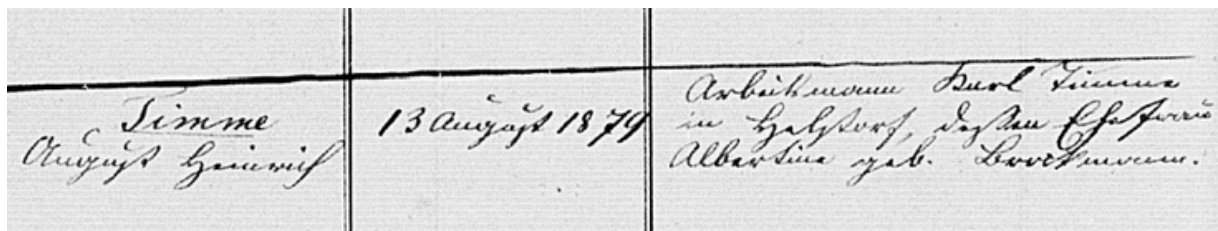 Timme
August Heinrich
13 August 1879
Arbeitsmann Karl Timme
in Helstorf, dessen Ehefrau
Albertine geb. Brockmann.